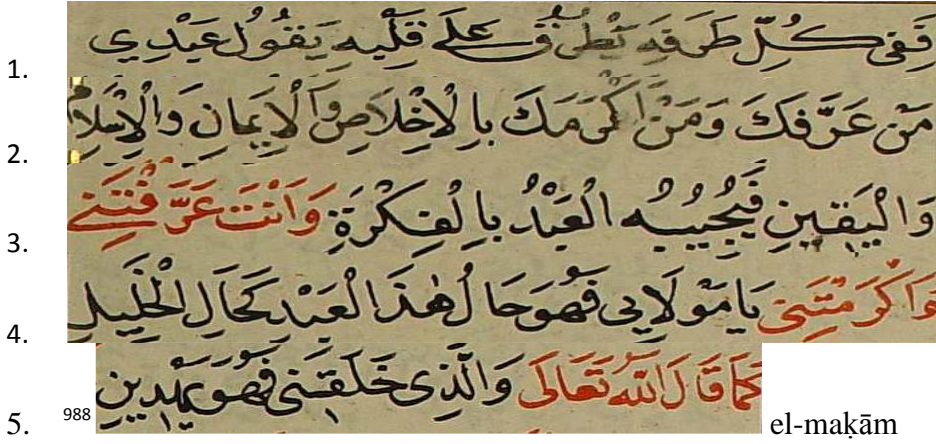 1. فَفِى كُلِّ طَرْقَةٍ تَطْرُقُ عَلَى قَلْبِهِ يَقُولُ عَبْدِي
2. مَنْ عَرَّفَكَ وَمَنْ اَكْرَمَكَ بِالْاِخْلَاصِ وَالْاِيمَانِ وَالْاِسْلَامِ
3. وَالْيَقِينِ فَيُجِيبُهُ الْعَبْدُ بِالْفِكْرَةِ وَاَنْتَ عَرَّفْتَنِى
4. وَاَكْرَمْتَنِى يَا مَوْلَايِى فَهُوَ حَالُ هٰذَا لْعَبْدِ كَحَالِ الْخَلِيلِ
5. 988 كَمَا قَالَ اللّٰهُ تَعَالَى وَالَّذِى خَلَقَنِى فَهُوَ يَهْدِينِ el-maḳām